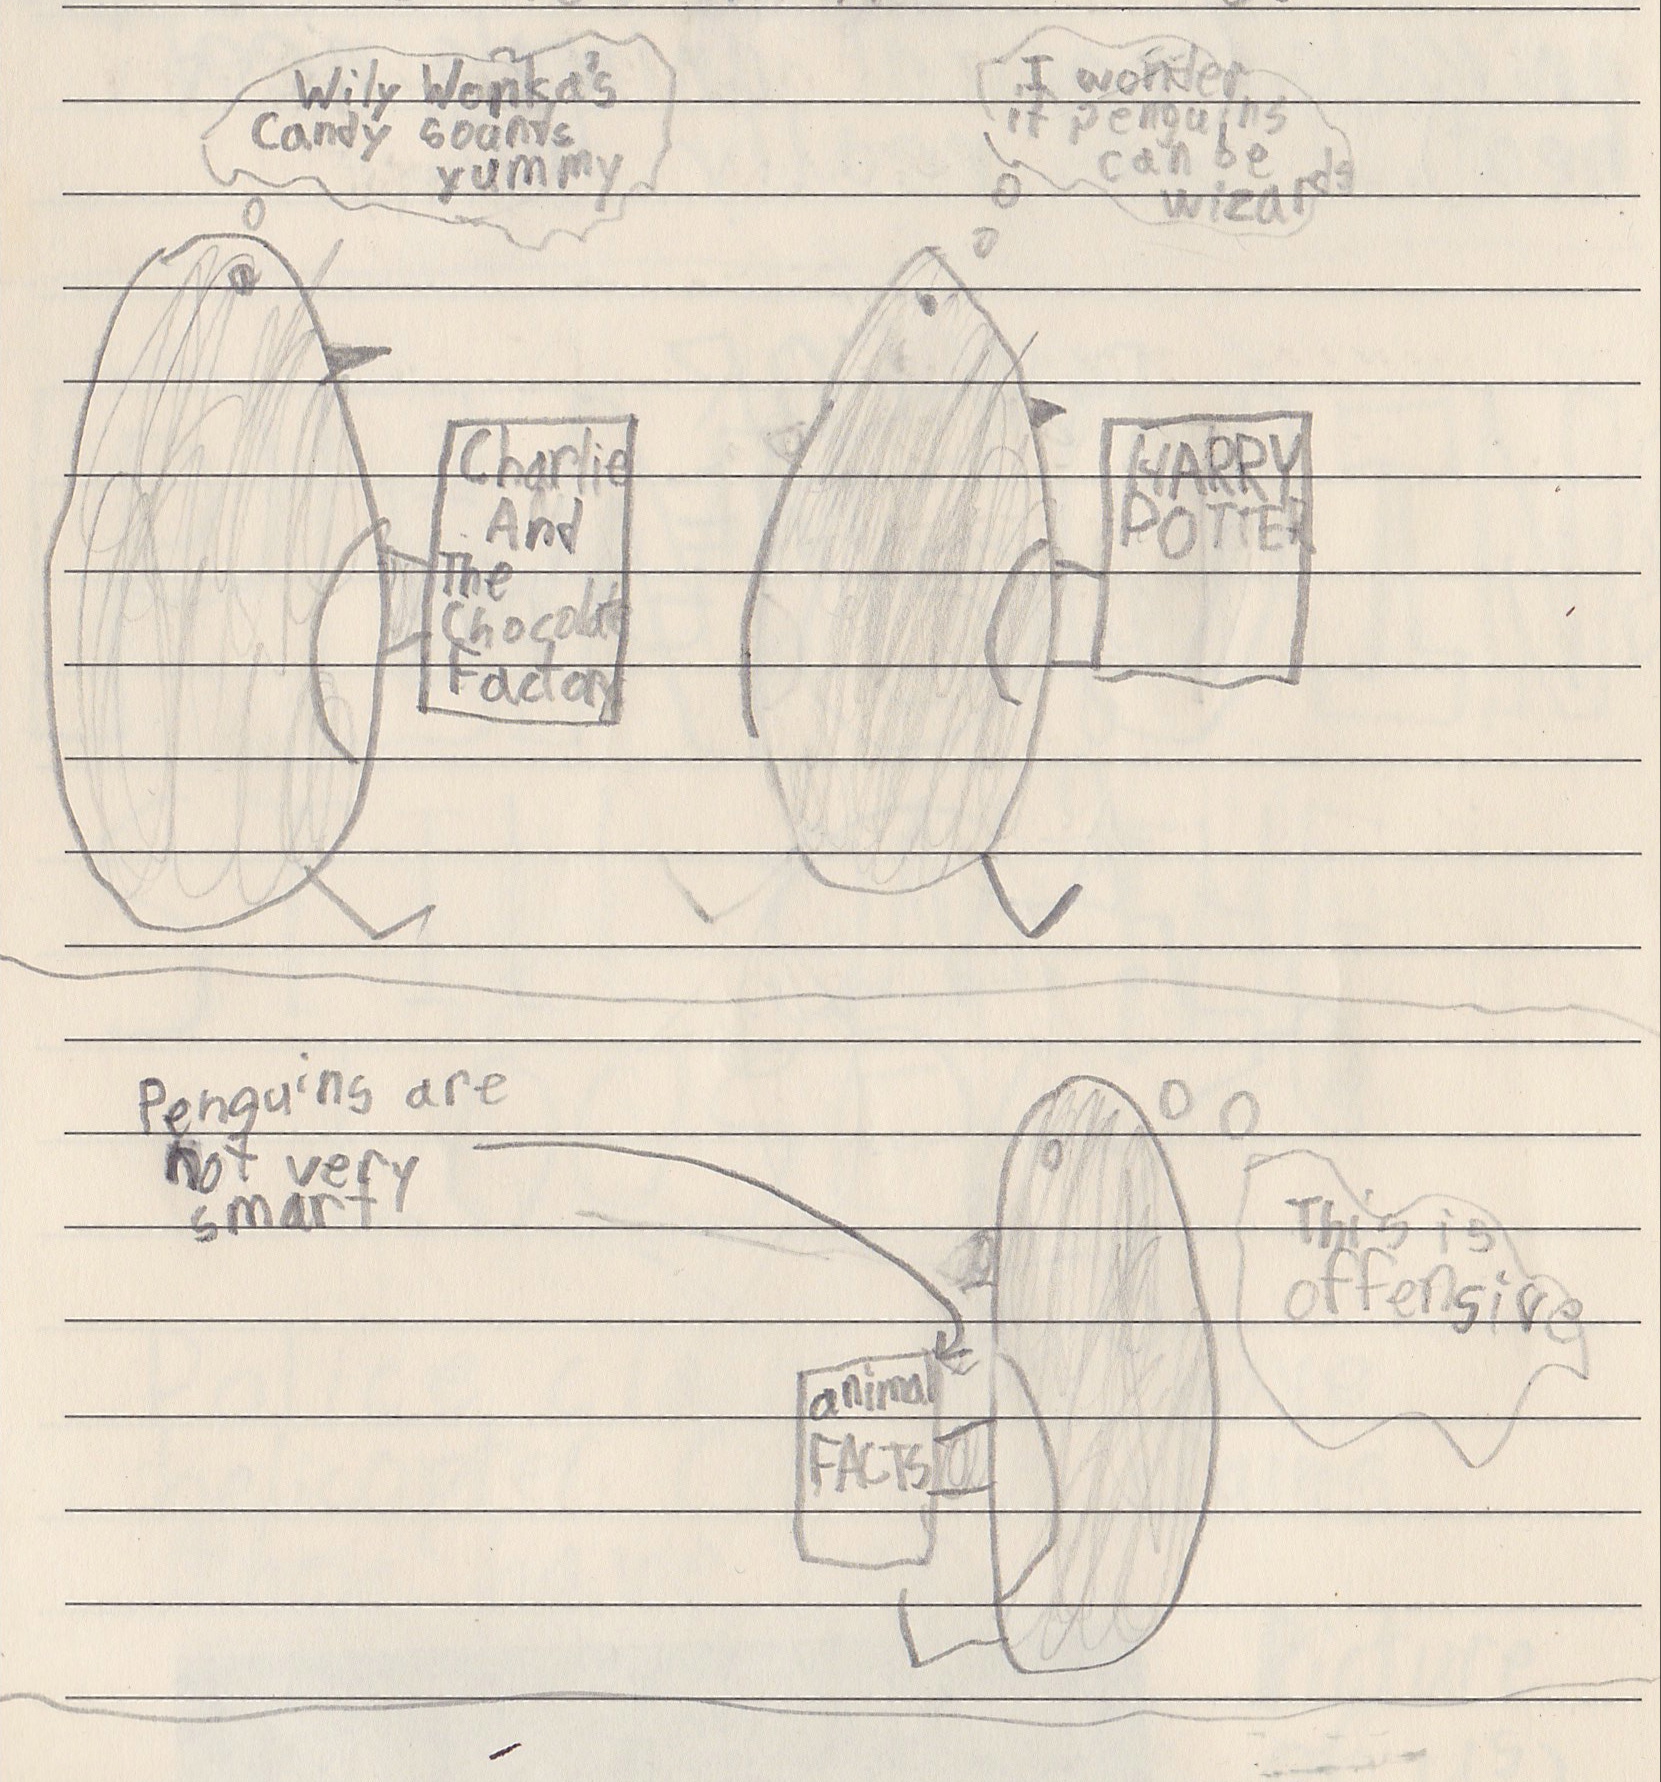 Wily Wonka's
Candy sounds
yummy
I wonder
if penguins
can be
wizards
Charlie
And
The
Chocolate
Factory
HARRY
POTTER
Penguins are
not very
smart
This is
offensive
animal
FACTS